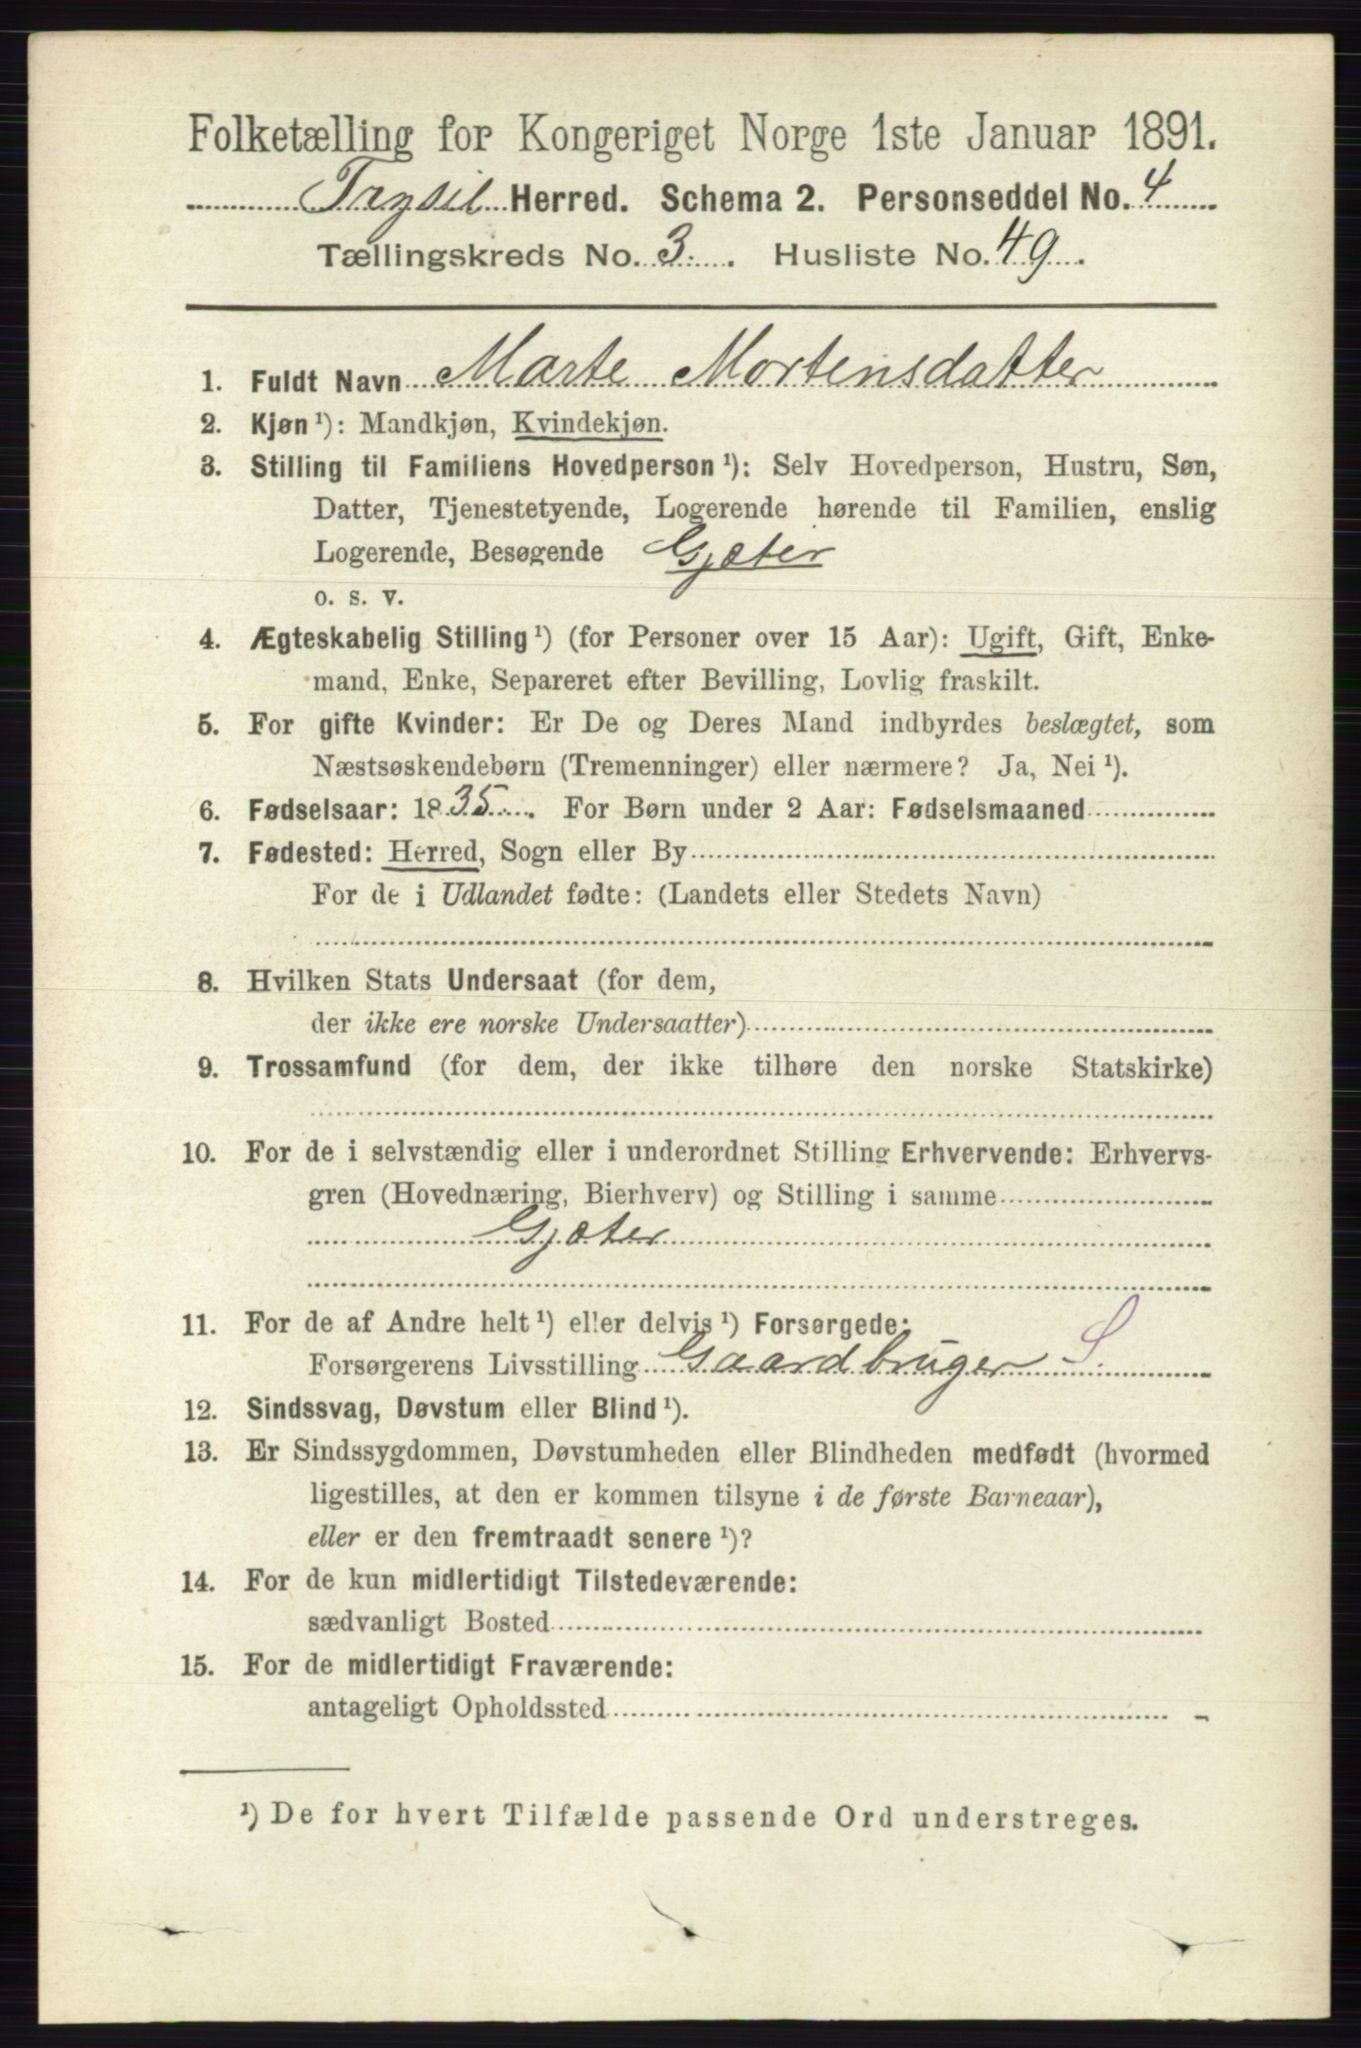 Folketælling for Kongeriget Norge 1ste Januar 1891.
Trysil Herred. Schema 2. Personseddel No. 4
Tællingskreds No. 3. Husliste No. 49.
1. Fuldt Navn Marte Mortensdatter
2. Kjøn ¹): Mandkjøn, Kvindekjøn.
3. Stilling til Familiens Hovedperson ¹): Selv Hovedperson, Hustru, Søn,
Datter, Tjenestetyende, Logerende hørende til Familien, enslig
Logerende, Besøgende Gjæter
o. s. v.
4. Ægteskabelig Stilling ¹) (for Personer over 15 Aar): Ugift, Gift, Enke-
mand, Enke, Separeret efter Bevilling, Lovlig fraskilt.
5. For gifte Kvinder: Er De og Deres Mand indbyrdes beslægtet, som
Næstsøskendebørn (Tremenninger) eller nærmere? Ja, Nei ¹).
6. Fødselsaar: 1835. For Børn under 2 Aar: Fødselsmaaned
7. Fødested: Herred, Sogn eller By
For de i Udlandet fødte: (Landets eller Stedets Navn)
8. Hvilken Stats Undersaat (for dem,
der ikke ere norske Undersaatter)
9. Trossamfund (for dem, der ikke tilhøre den norske Statskirke)
10. For de i selvstændig eller i underordnet Stilling Erhvervende: Erhvervs-
gren (Hovednæring, Bierhverv) og Stilling i samme
Gjæter
11. For de af Andre helt ¹) eller delvis ¹) Forsørgede:
Forsørgerens Livsstilling Gaardbruger S.
12. Sindssvag, Døvstum eller Blind ¹).
13. Er Sindssygdommen, Døvstumheden eller Blindheden medfødt (hvormed
ligestilles, at den er kommen tilsyne i de første Barneaar),
eller er den fremtraadt senere ¹)?
14. For de kun midlertidigt Tilstedeværende:
sædvanligt Bosted
15. For de midlertidigt Fraværende:
antageligt Opholdssted
¹) De for hvert Tilfælde passende Ord understreges.